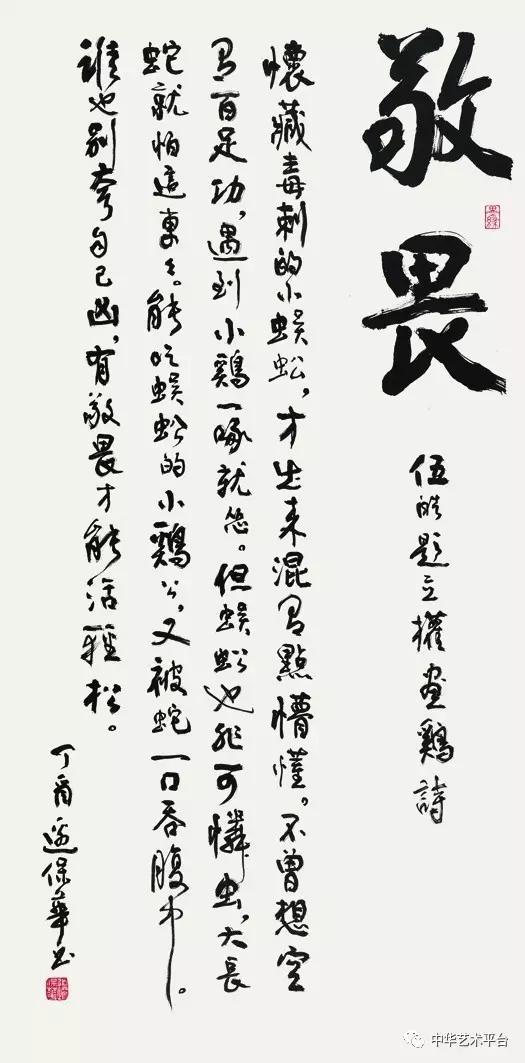 敬畏
伍皓題立權畫鷄詩
懷藏毒刺的小蜈蚣，才出来混有點懵懂。不曾想空
有百足功，遇到小鷄一啄就怂。但蜈蚣也非可憐虫，大長
蛇就怕這東々。能吃蜈蚣的小鷄公，又被蛇一口吞腹中。
誰也别夸自己凶，有敬畏才能活輕松。
丁酉 保華书
中华艺术平台